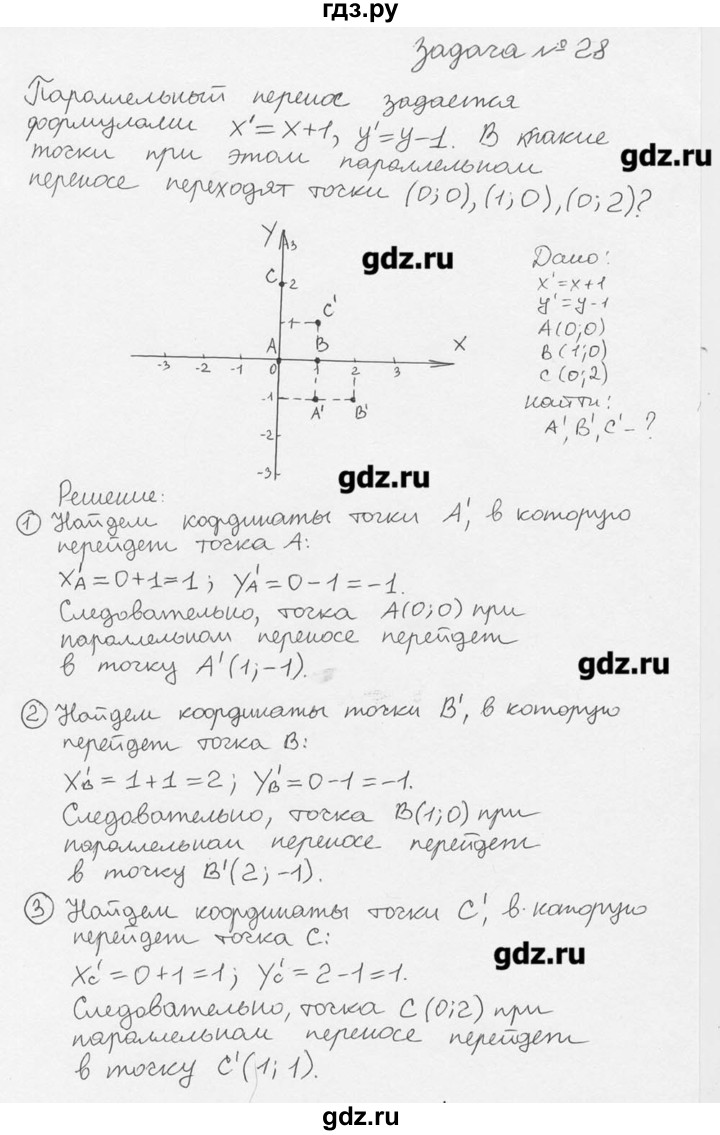 гдз.ру
Задача № 28
Параллельный перенос задается
формулами x'=x+1, y'=y-1. В какие
точки при этом параллельном
gdz.ru
переносе переходят точки (0;0),(1;0),(0;2)?
Y
3
gdz.ru
Дано:
C
2
x'=x+1
C'
y'=y-1
1
A(0;0)
A
B
X
B(1;0)
-3 -2 -1 0 1 2 3
C(0;2)
-1
найти:
A'
B'
A', B', C' - ?
-2
-3
gdz.ru
Решение:
1 Найдем координаты точки A', в которую
перейдет точка A:
x'A=0+1=1; y'A=0-1=-1.
Следовательно, точка A(0;0) при
параллельном переносе перейдет
в точку A'(1;-1).
gdz.ru
2 Найдем координаты точки B', в которую
перейдет точка B:
x'B=1+1=2; y'B=0-1=-1.
Следовательно, точка B(1;0) при
параллельном переносе перейдет
в точку B'(2;-1).
3 Найдем координаты точки C', в которую
перейдет точка C:
gdz.ru
x'C=0+1=1; y'C=2-1=1.
Следовательно, точка C(0;2) при
параллельном переносе перейдет
в точку C'(1;1).
gdz.ru